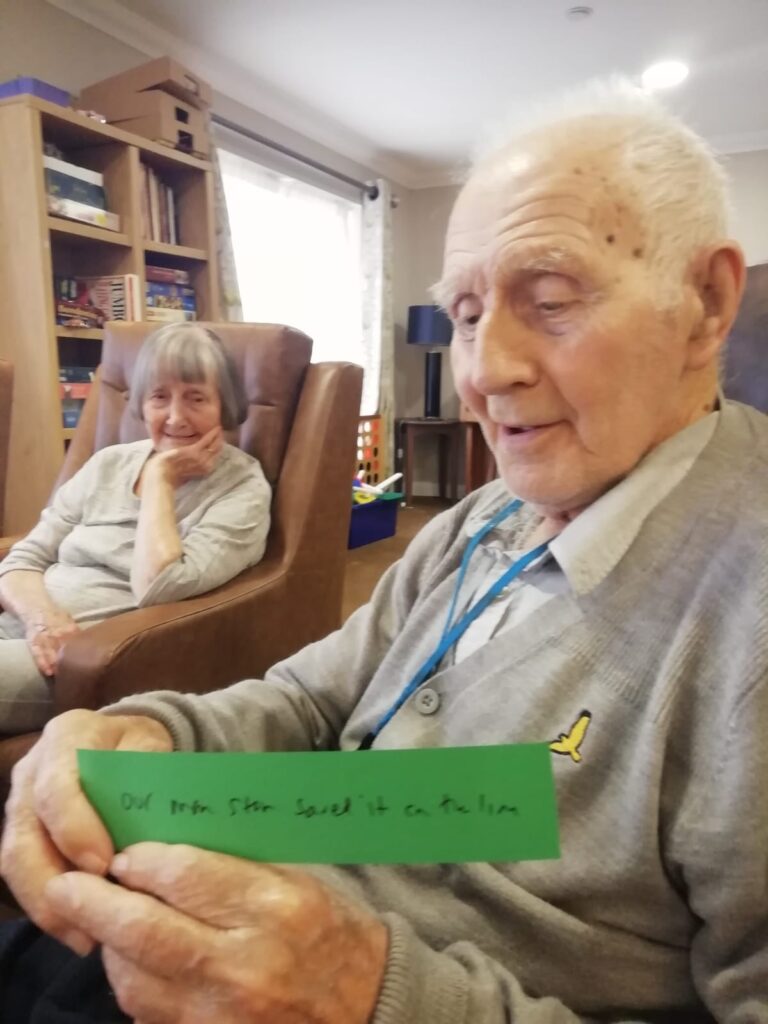 JUMBO
Our man Stan saved it on the line